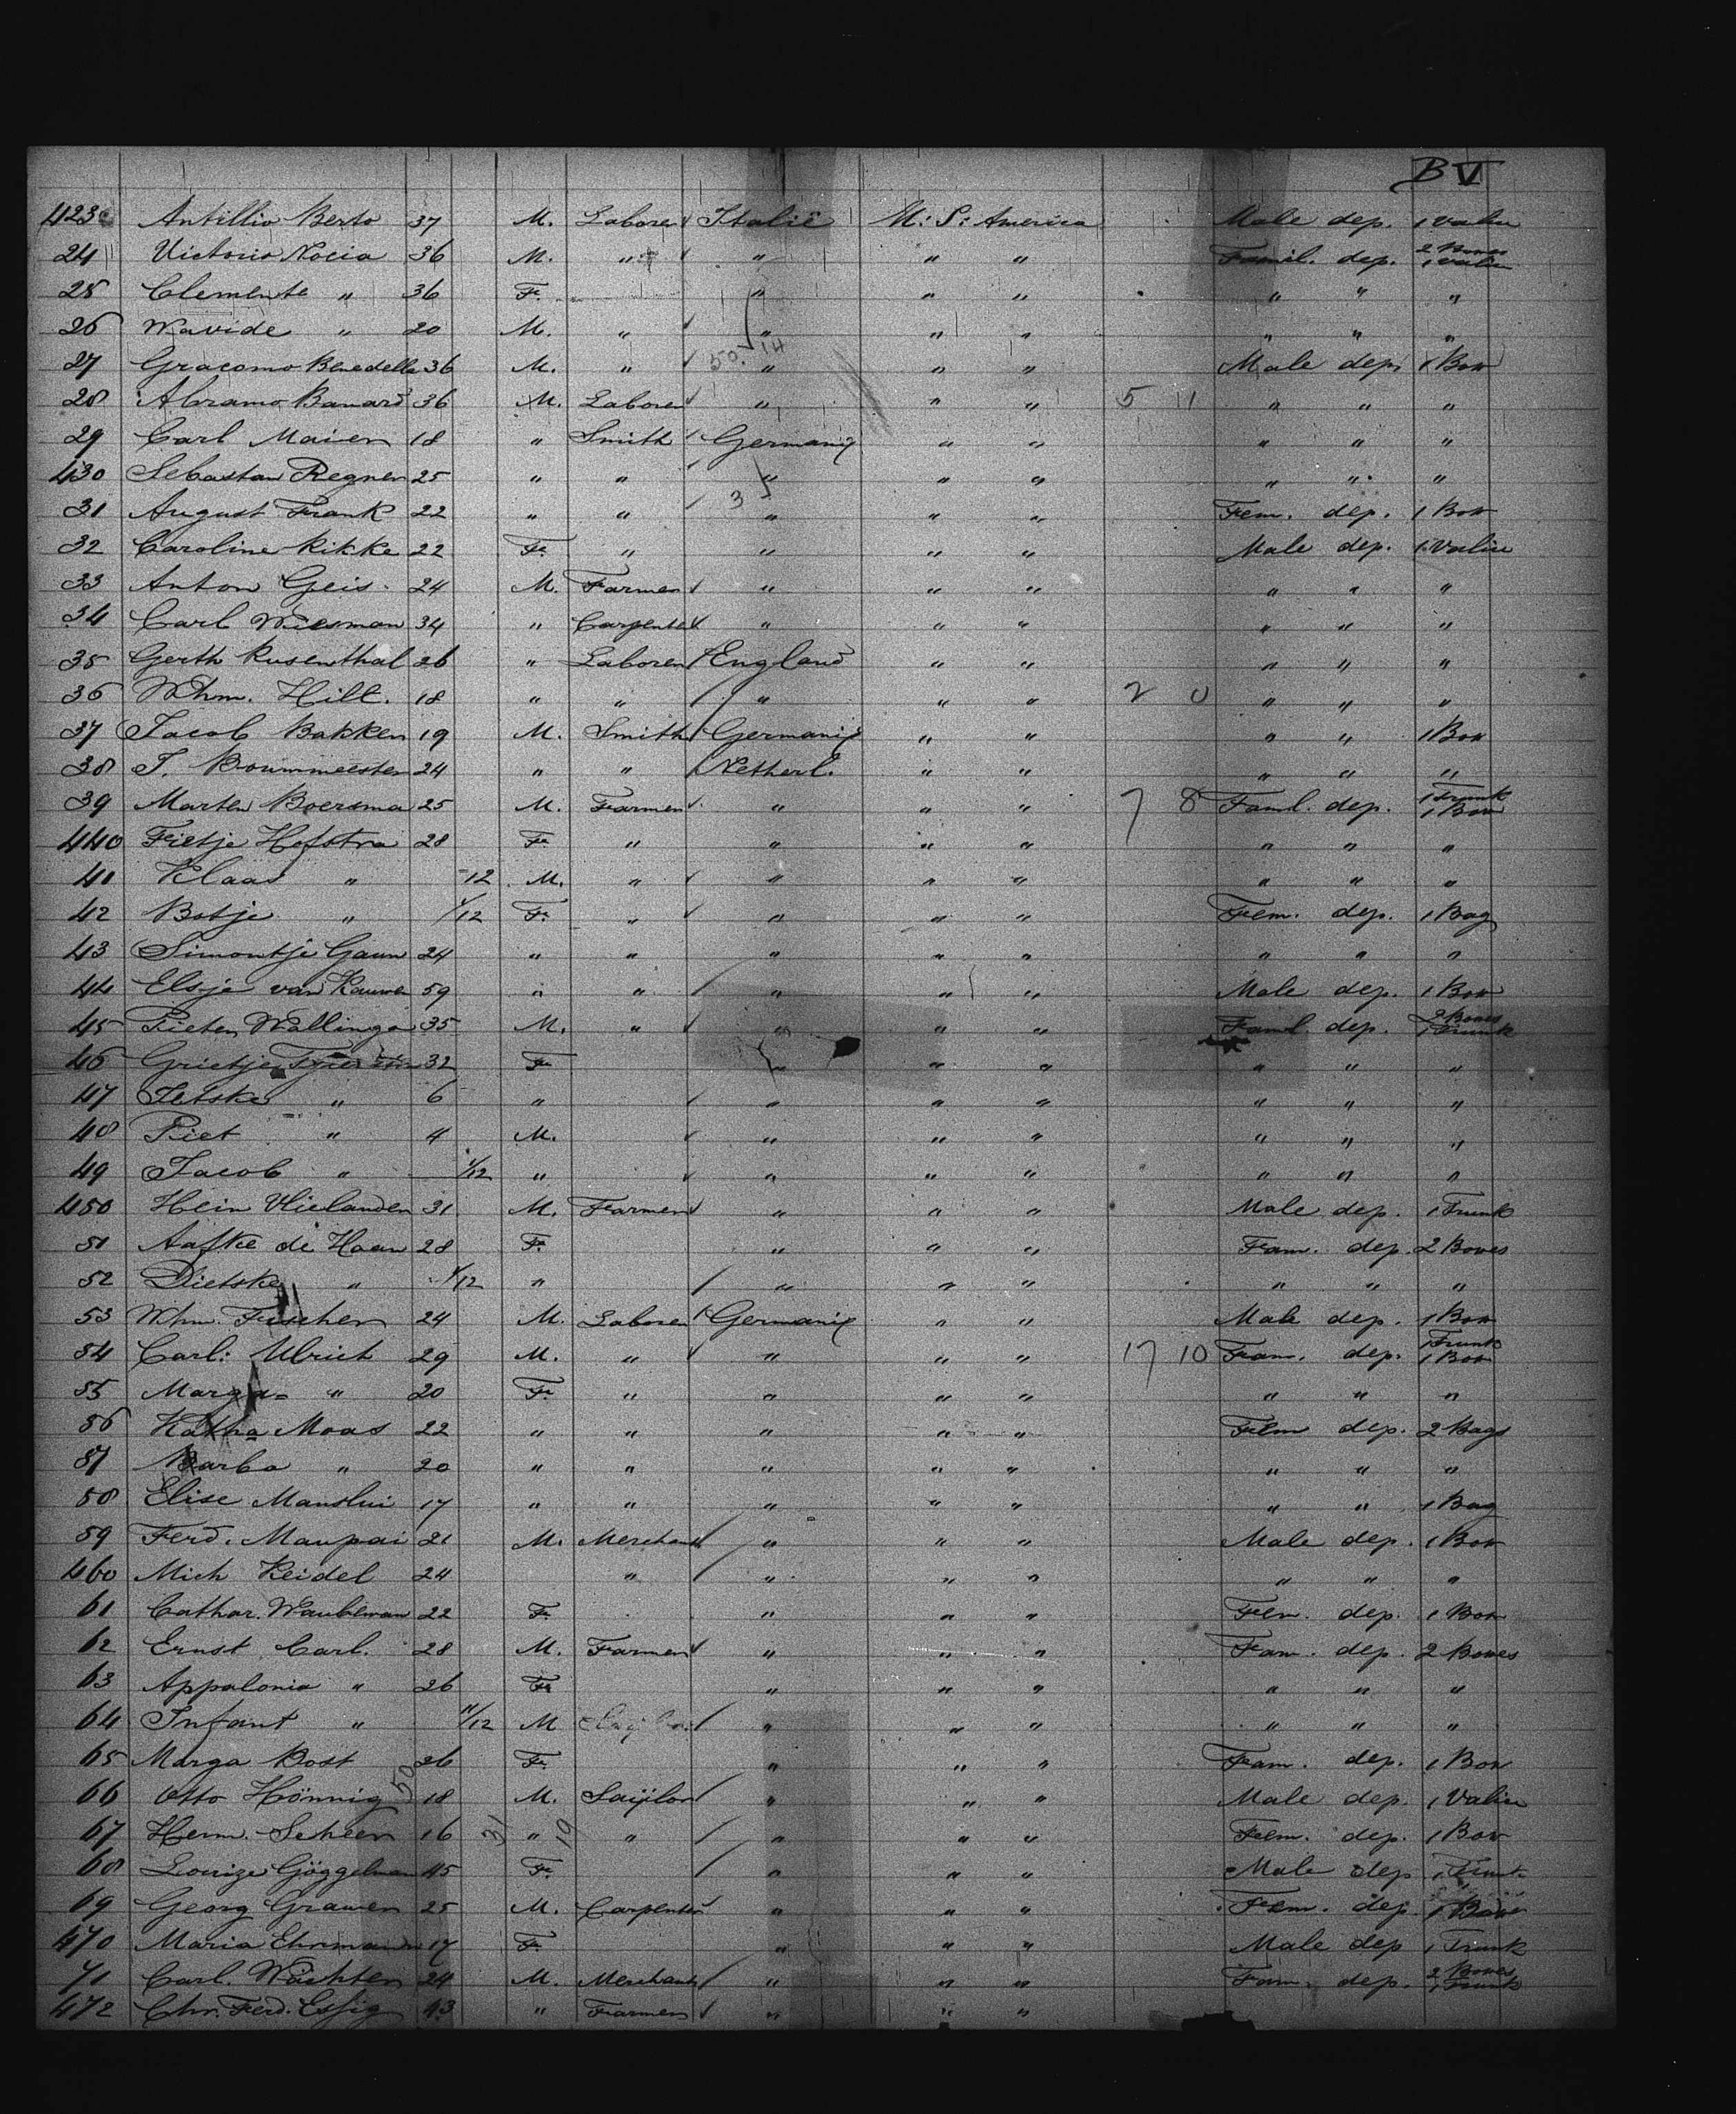 B V
423 Antillio Berto 37 M. Laborer Italië M: S: America Male dep. 1 Valise
24 Victorio Nocia 36 M. " " " " Famil. dep. 2 Boxes 1 Valise
25 Clemente " 36 F. " " " " " "
26 Wavide " 20 M. " " " " " " "
27 Gracomo Benedella 36 M. " " " " Male dep. 1 Box
28 Abramo Banard 36 M. Laborer " " " 5 11 " " "
29 Carl Maier 18 " Smith Germany " " " " "
430 Sebastan Regner 25 " " " " " " " "
31 August Frank 22 " " " " " Fem. dep. 1 Box
32 Caroline Rikke 22 F. " " " " Male dep. 1 Valise
33 Anton Geis 24 M. Farmer " " " " " "
34 Carl Wiesman 34 " Carpenter " " " " " "
35 Gerth Rusenthal 26 " Laborer England " " " " "
36 Whm. Hill. 18 " " " " " 2 0 " " "
37 Jacob Bakker 19 M. Smith Germany " " " " 1 Box
38 T. Bouwmeester 24 " " Netherl. " " " " "
39 Marten Boersma 25 M. Farmer " " " 7 8 Faml. dep. 1 Trunk 1 Box
440 Fietje Hofstra 28 F. " " " " " " "
41 Klaas " 12 M. " " " " " " "
42 Botje " 1/12 F. " " " " Fem. dep. 1 Bag
43 Simontje Gaun 24 " " " " " " " "
44 Elsje van Kauwen 59 " " " " " Male dep. 1 Box
45 Pieter Wallinga 35 M. " " " " Faml dep. 2 Boxes 1 Trunk
46 Grietje 32 F. " " " " " "
47 Jetske " 6 " " " " " " "
48 Piet " 4 M. " " " " " "
49 Jacob " 1/12 " " " " " " "
450 Hein Vlielander 31 M. Farmer " " " Male dep. 1 Trunk
51 Aafke de Haan 28 F. " " " Fam. dep. 2 Boxes
52 Dietske " 1/12 " " " " " " "
53 Whm. Fischer 24 M. Laborer Germany " " Male dep. 1 Box
54 Carl: Ulrich 29 M. " " " " 17 10 Fam. dep. 1 Trunk 1 Box
55 Marga " 20 F. " " " " " " "
56 Katha Maas 22 " " " " " Fem dep. 2 Bags
57 Barba " 20 " " " " " " " "
58 Elise Manslui 17 " " " " " " " 1 Bag
59 Ferd. Maupai 21 M. Merchant " " " Male dep. 1 Box
460 Mich Keidel 24 " " " " " " "
61 Cathar. Waubeman 22 F. " " " Fem. dep. 1 Box
62 Ernst Carl. 28 M. Farmer " " " Fam. dep. 2 Boxes
63 Appalonia " 26 F. " " " " " "
64 Infant " 11/12 M " " " " " "
65 Marga Bost 26 F. " " " Fam. dep. 1 Box
66 Otto Hönnig 18 M. Saijlor " " " Male dep. 1 Valise
67 Herm. Scheer 16 " " " " " Fem. dep. 1 Box
68 Lourize Göggelman 45 F. " " " Male dep 1 Trunk
69 Georg Grawer 25 M. Carpenter " " " Fem. dep. 1 Box
470 Maria Ehrmann 17 F. " " " Male dep 1 Trunk
71 Carl. Wächter 24 M. Merchant " " " Fam. dep. 2 Boxes 1 Trunk
472 Chr. Ferd. Essig 43 " Farmer " " "